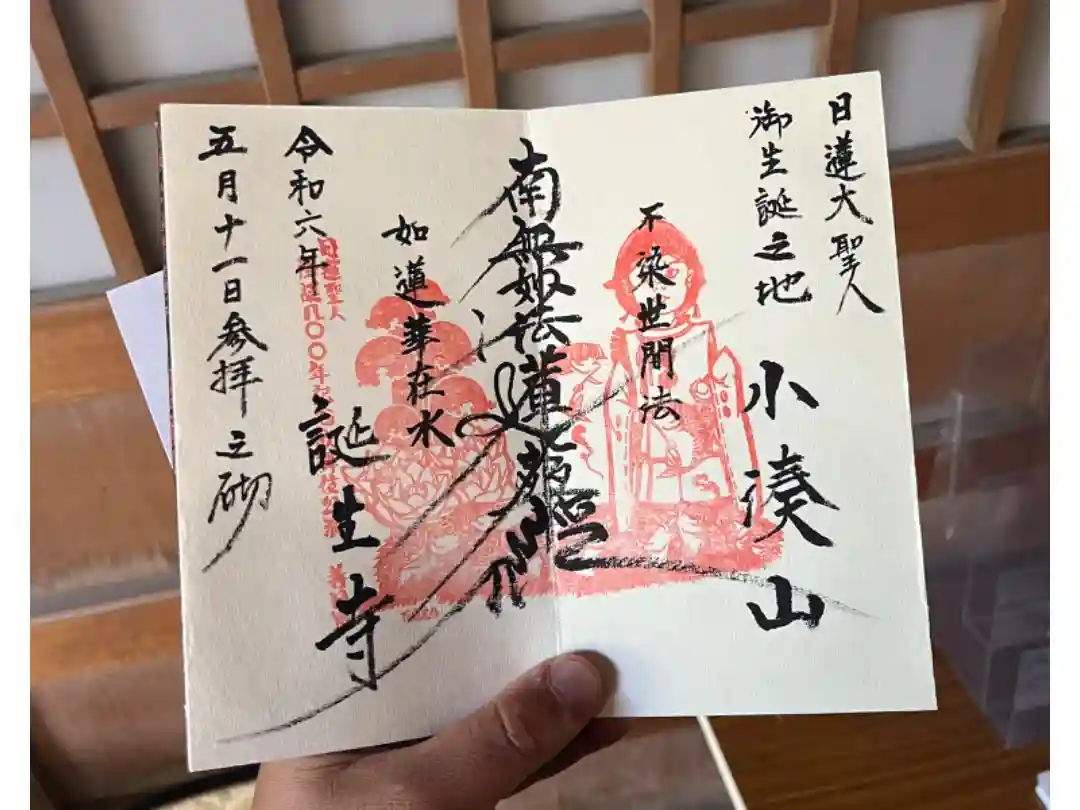 日蓮大聖人
御生誕之地
小湊山
不染世間法
南無妙法蓮華経
如蓮華在水
誕生寺
令和六年
五月十一日参拝之砌
日蓮聖人